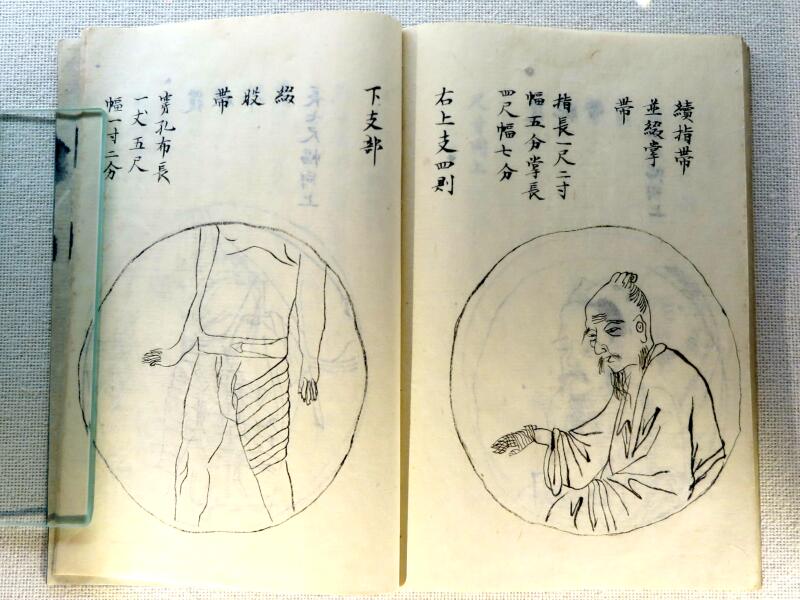 績指帶
並綴掌
帶
指長一尺二寸
幅五分掌長
四尺幅七分
右上支四則
下支部
綴
股
帶
穿孔布長
一丈五尺
幅一寸二分